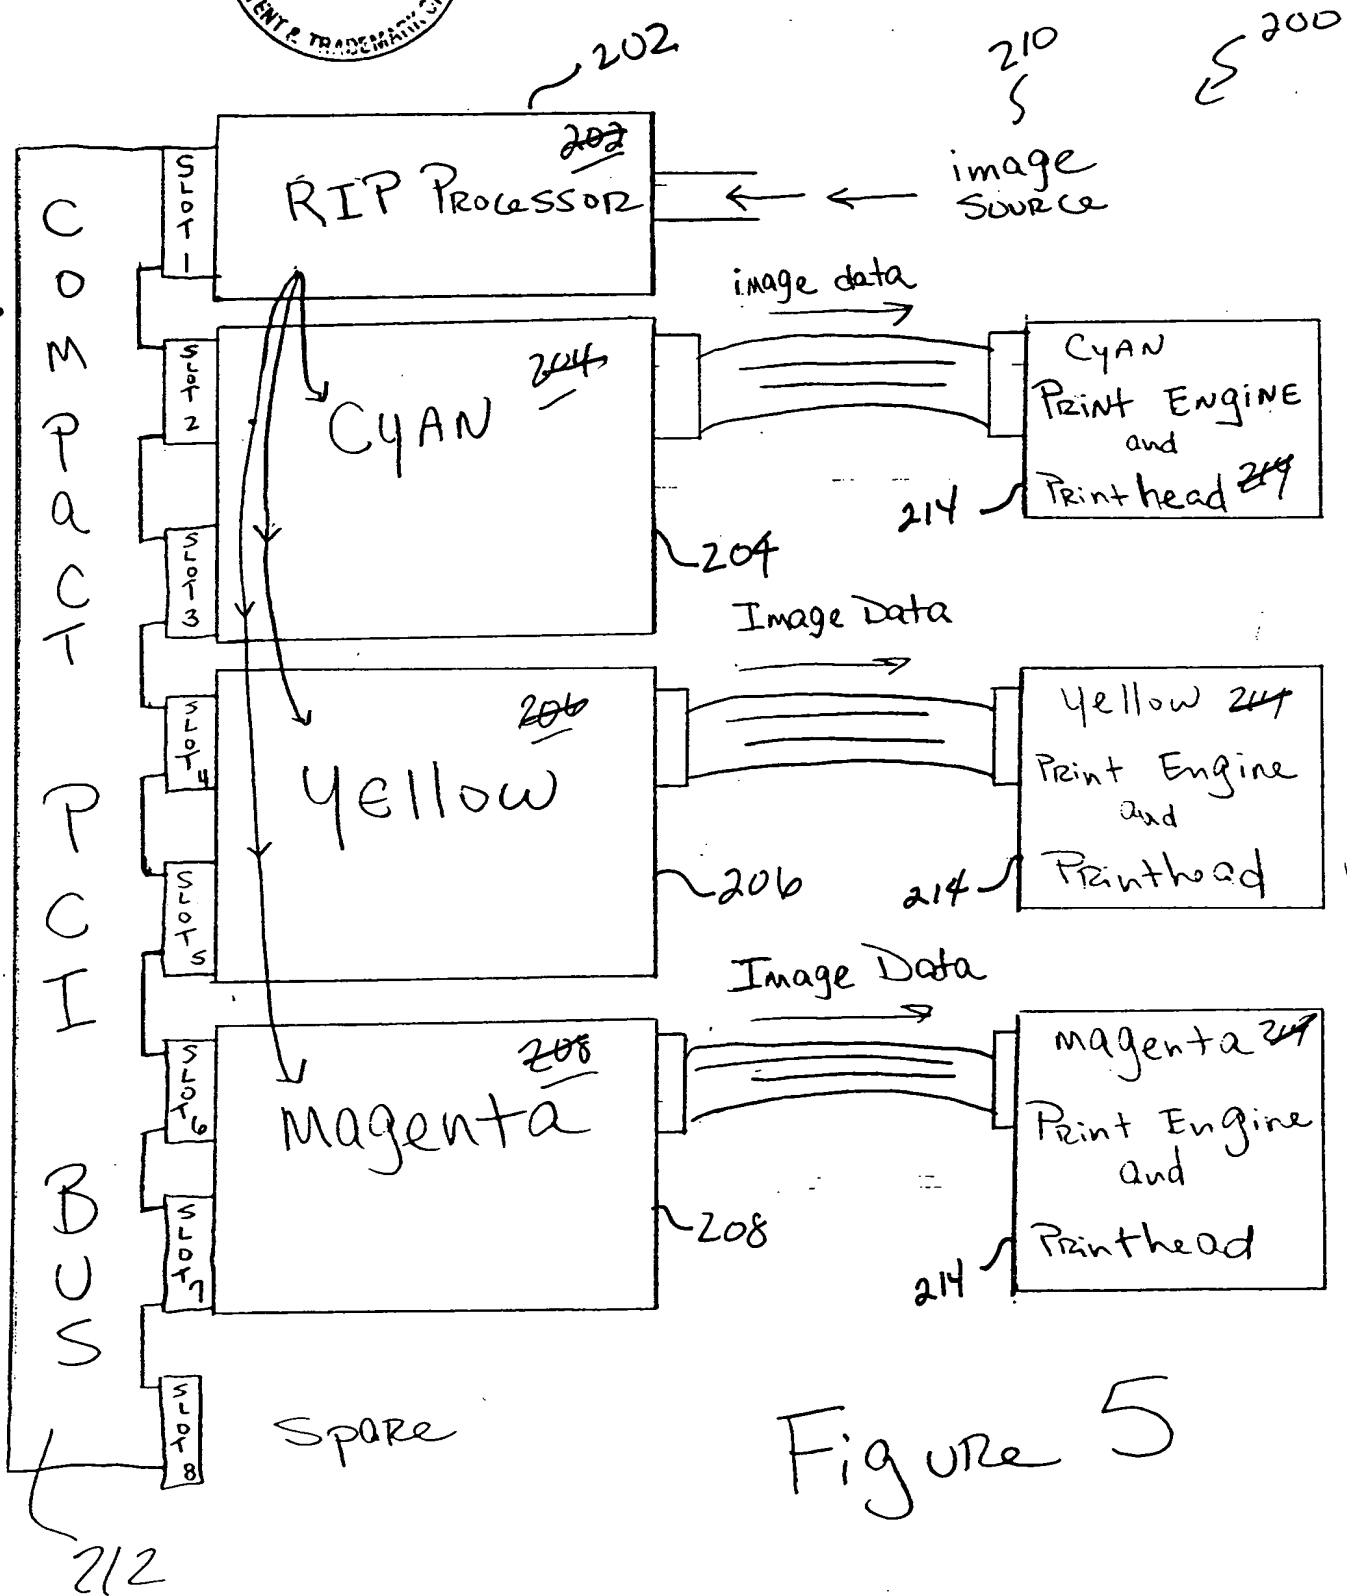 ENT & TRADEMARK O
202
210
200
COMPACT PCI BUS
SLOT 1
202
RIP Processor
image
source
image data
SLOT 2
204
Cyan
SLOT 3
204
Cyan
Print Engine
and
Printhead 214
214
Image Data
SLOT 4
206
Yellow
SLOT 5
206
Yellow 214
Print Engine
and
Printhead
214
Image Data
SLOT 6
208
Magenta
SLOT 7
208
Magenta 214
Print Engine
and
Printhead
214
SLOT 8
Spare
Figure 5
212